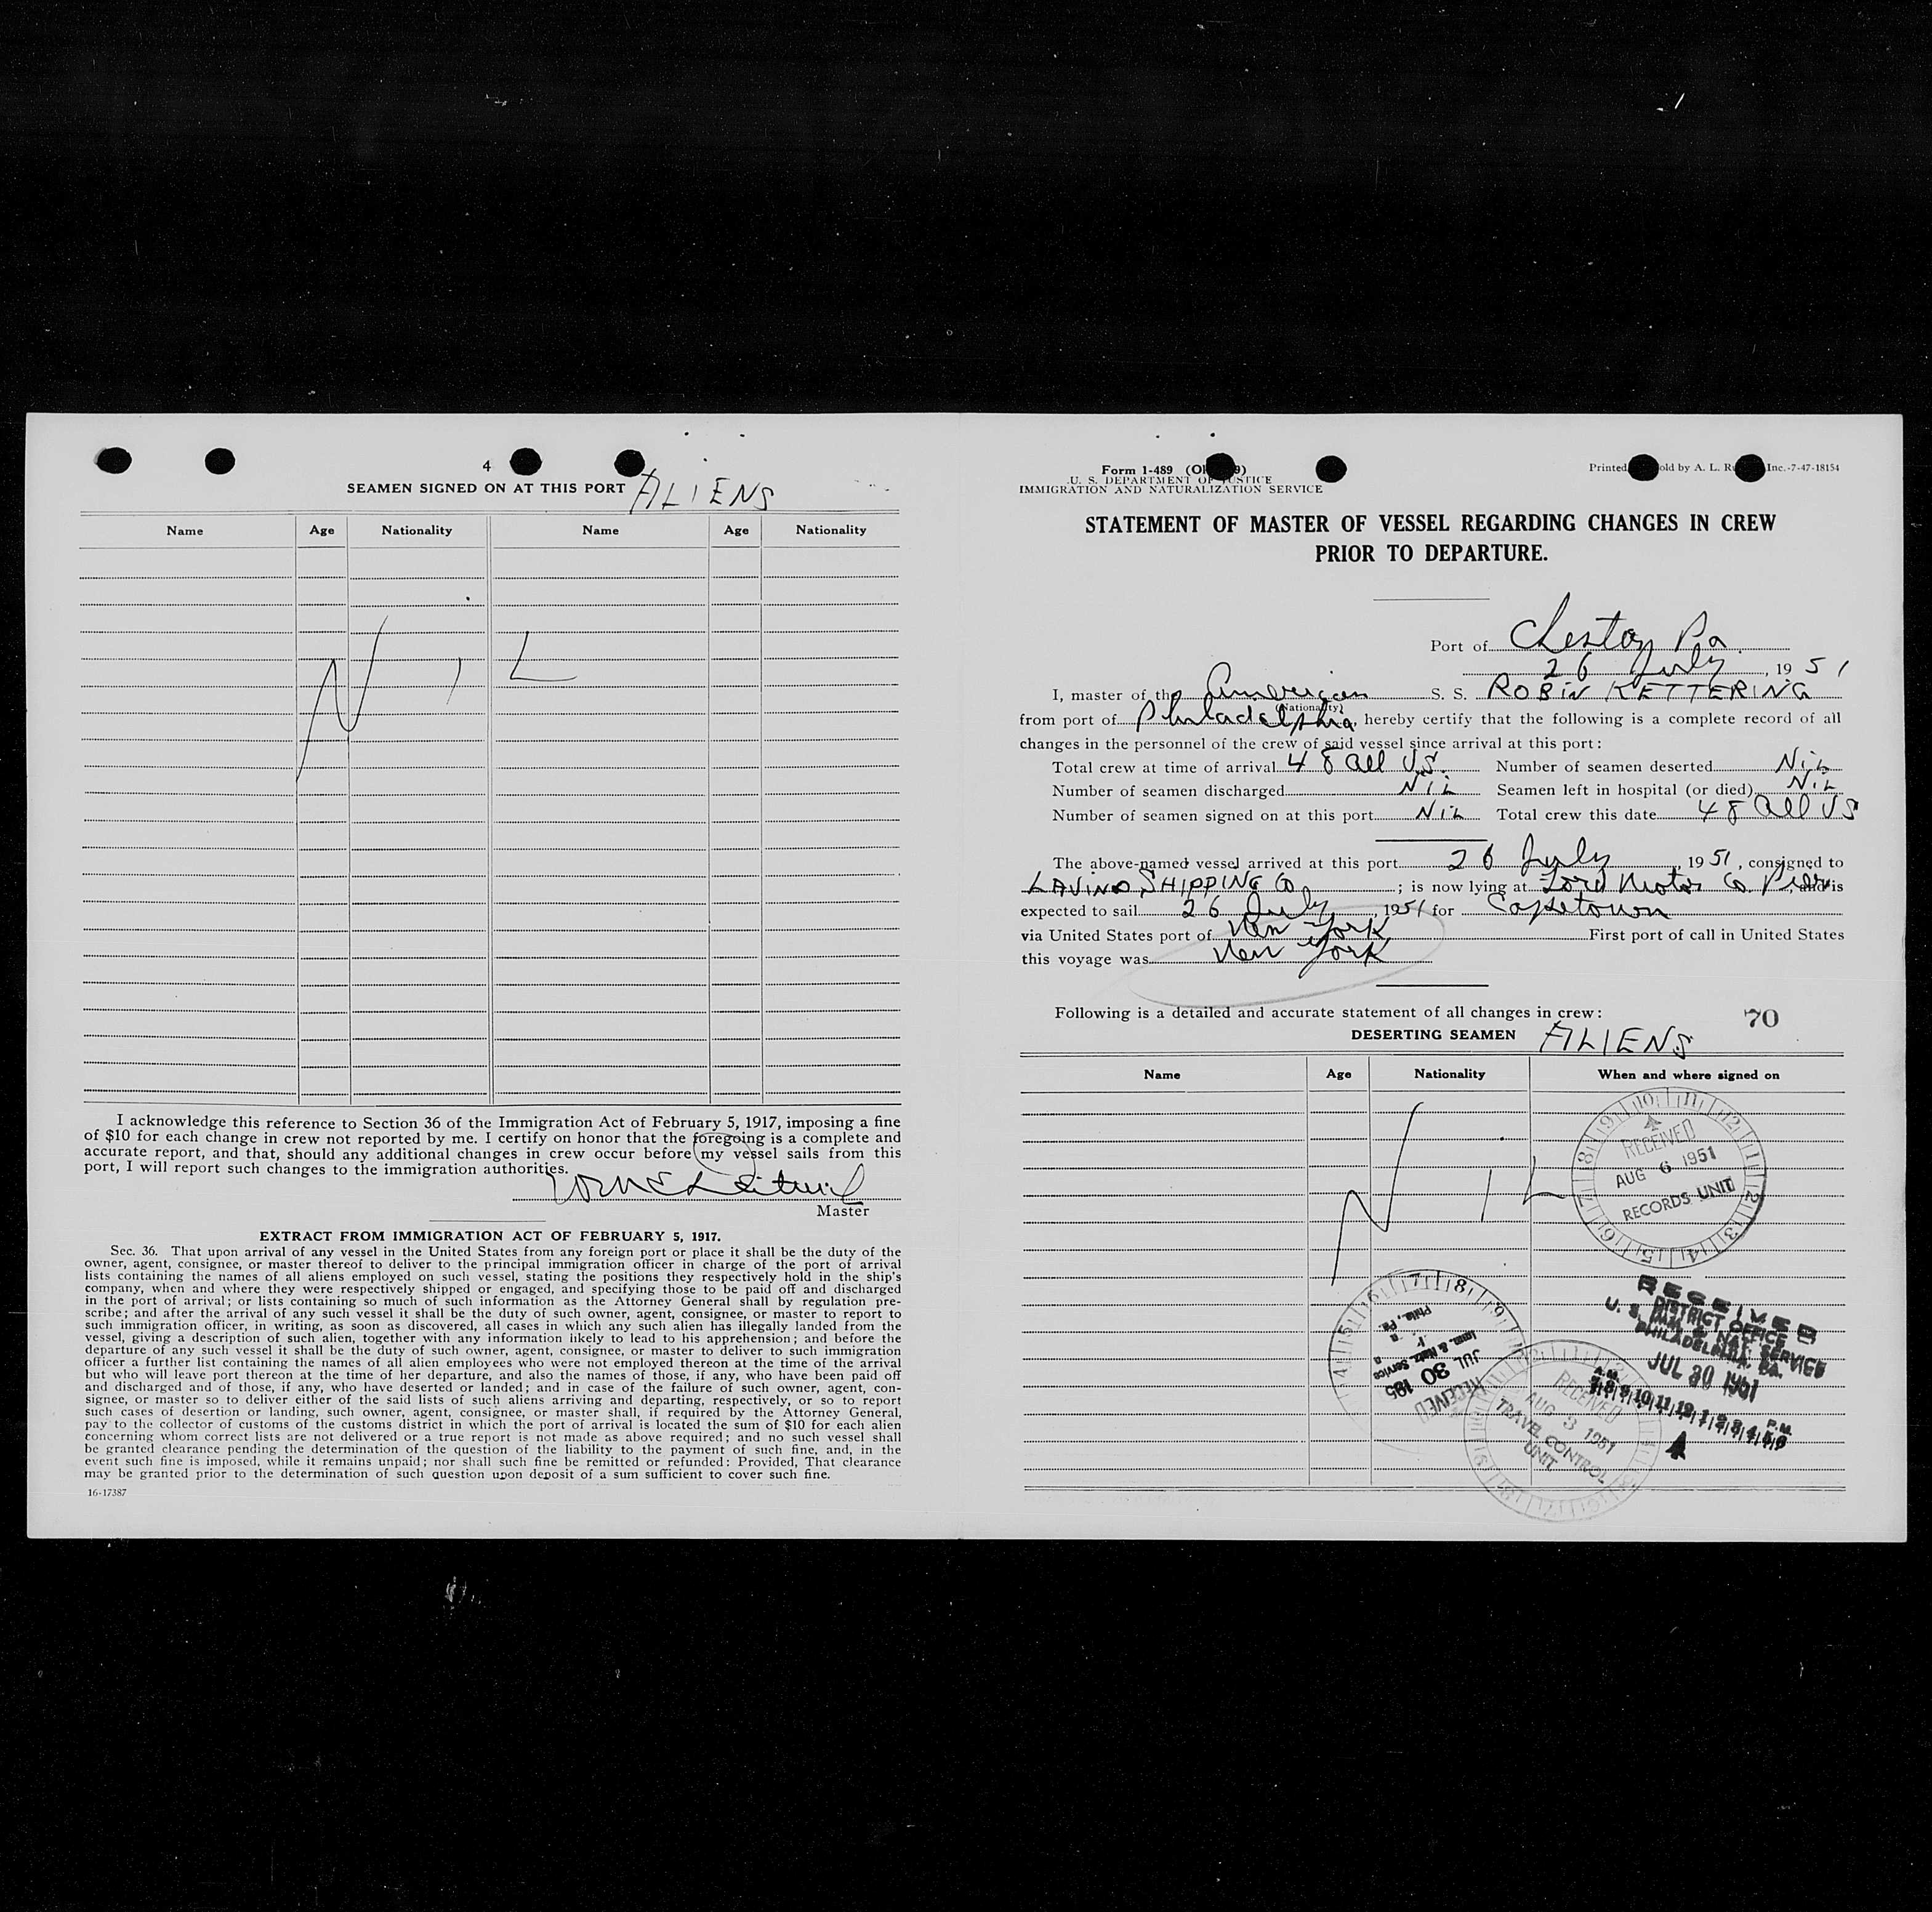 4
SEAMEN SIGNED ON AT THIS PORT ALIENS
Name Age Nationality Name Age Nationality
N I L
I acknowledge this reference to Section 36 of the Immigration Act of February 5, 1917, imposing a fine
of $10 for each change in crew not reported by me. I certify on honor that the foregoing is a complete and
accurate report, and that, should any additional changes in crew occur before my vessel sails from this
port, I will report such changes to the immigration authorities.
Master
EXTRACT FROM IMMIGRATION ACT OF FEBRUARY 5, 1917.
Sec. 36. That upon arrival of any vessel in the United States from any foreign port or place it shall be the duty of the
owner, agent, consignee, or master thereof to deliver to the principal immigration officer in charge of the port of arrival
lists containing the names of all aliens employed on such vessel, stating the positions they respectively hold in the ship's
company, when and where they were respectively shipped or engaged, and specifying those to be paid off and discharged
in the port of arrival; or lists containing so much of such information as the Attorney General shall by regulation pre-
scribe; and after the arrival of any such vessel it shall be the duty of such owner, agent, consignee, or master to report to
such immigration officer, in writing, as soon as discovered, all cases in which any such alien has illegally landed from the
vessel, giving a description of such alien, together with any information likely to lead to his apprehension; and before the
departure of any such vessel it shall be the duty of such owner, agent, consignee, or master to deliver to such immigration
officer a further list containing the names of all alien employees who were not employed thereon at the time of the arrival
but who will leave port thereon at the time of her departure, and also the names of those, if any, who have been paid off
and discharged and of those, if any, who have deserted or landed; and in case of the failure of such owner, agent, con-
signee, or master so to deliver either of the said lists of such aliens arriving and departing, respectively, or so to report
such cases of desertion or landing, such owner, agent, consignee, or master shall, if required by the Attorney General,
pay to the collector of customs of the customs district in which the port of arrival is located the sum of $10 for each alien
concerning whom correct lists are not delivered or a true report is not made as above required; and no such vessel shall
be granted clearance pending the determination of the question of the liability to the payment of such fine, and, in the
event such fine is imposed, while it remains unpaid; nor shall such fine be remitted or refunded: Provided, That clearance
may be granted prior to the determination of such question upon deposit of a sum sufficient to cover such fine.
16-17387
Form I-489
U. S. DEPARTMENT OF JUSTICE
IMMIGRATION AND NATURALIZATION SERVICE
Printed old by A. L. Inc.-7-47-18154
STATEMENT OF MASTER OF VESSEL REGARDING CHANGES IN CREW
PRIOR TO DEPARTURE.
Port of Chester Pa.
26 July, 1951
I, master of the American S. S. ROBIN KETTERING
(Nationality)
from port of Philadelphia, hereby certify that the following is a complete record of all
changes in the personnel of the crew of said vessel since arrival at this port:
Total crew at time of arrival 48 all US. Number of seamen deserted NiL
Number of seamen discharged NiL Seamen left in hospital (or died) NiL
Number of seamen signed on at this port NiL Total crew this date 48 all US
The above-named vessel arrived at this port 26 July, 1951, consigned to
LAVINO SHIPPING Co; is now lying at Ford Motor Co Pier, and is
expected to sail 26 July, 1951 for Capetown
via United States port of New York First port of call in United States
this voyage was New York
Following is a detailed and accurate statement of all changes in crew:
70
DESERTING SEAMEN ALIENS
Name Age Nationality When and where signed on
N I L
RECEIVED
AUG 6 1951
RECORDS UNIT
RECEIVED
DISTRICT OFFICE
U. S. IMM. & NAT. SERVICE
PHILADELPHIA, PA.
JUL 30 1951
A.M. P.M.
7|8|9|10|11|12|1|2|3|4|5|6
RECEIVED
JUL 30 195
Imm. & Natz. Service
Phila., Pa.
RECEIVED
AUG 3 1951
TRAVEL CONTROL
UNIT